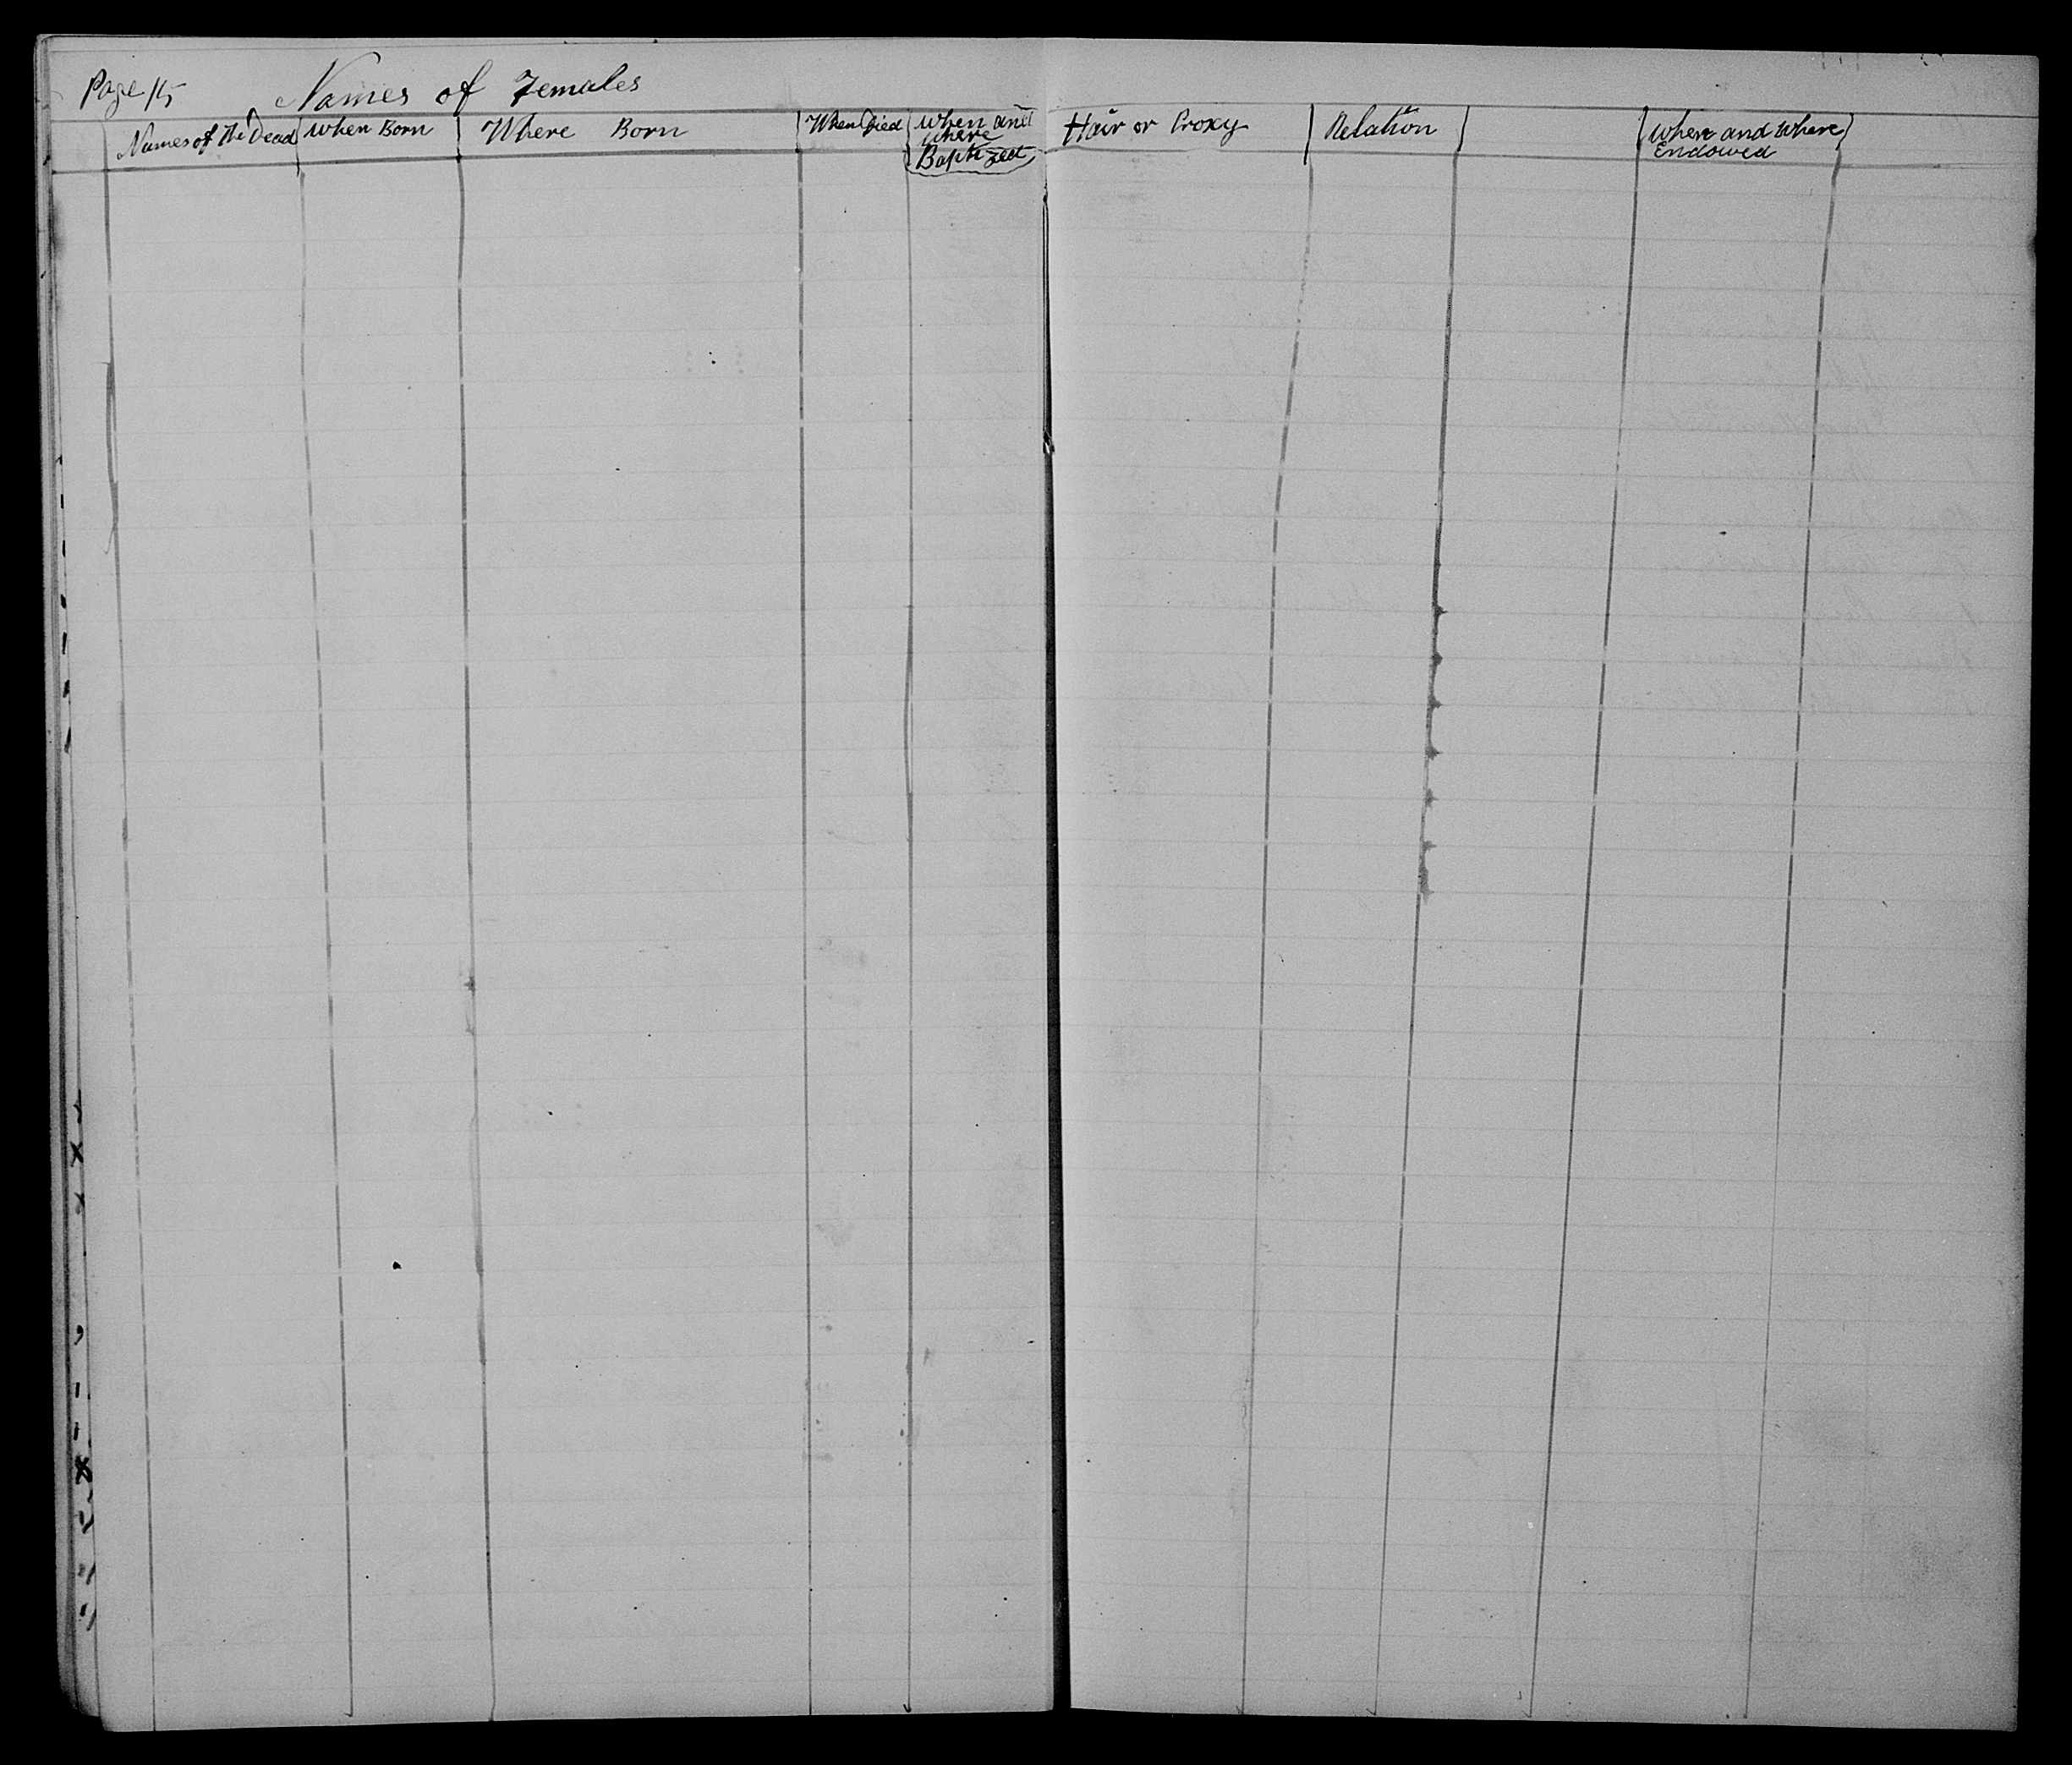 Page 15 Names of Females
Names of the Dead When Born Where Born When Died When and where Baptized Hair or Proxy Relation When and where Endowed